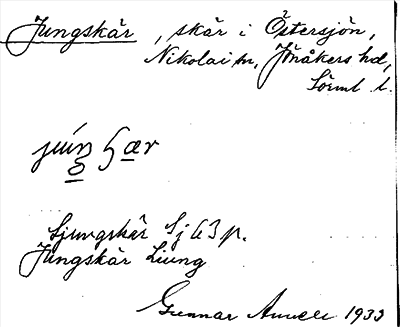 Jungskär, skär i Östersjön,
Nikolai sn, Jönåkers hd,
Sörml. l.
Ljungskär Sj 63 p.
Jungskär Liung
Gunnar 1933